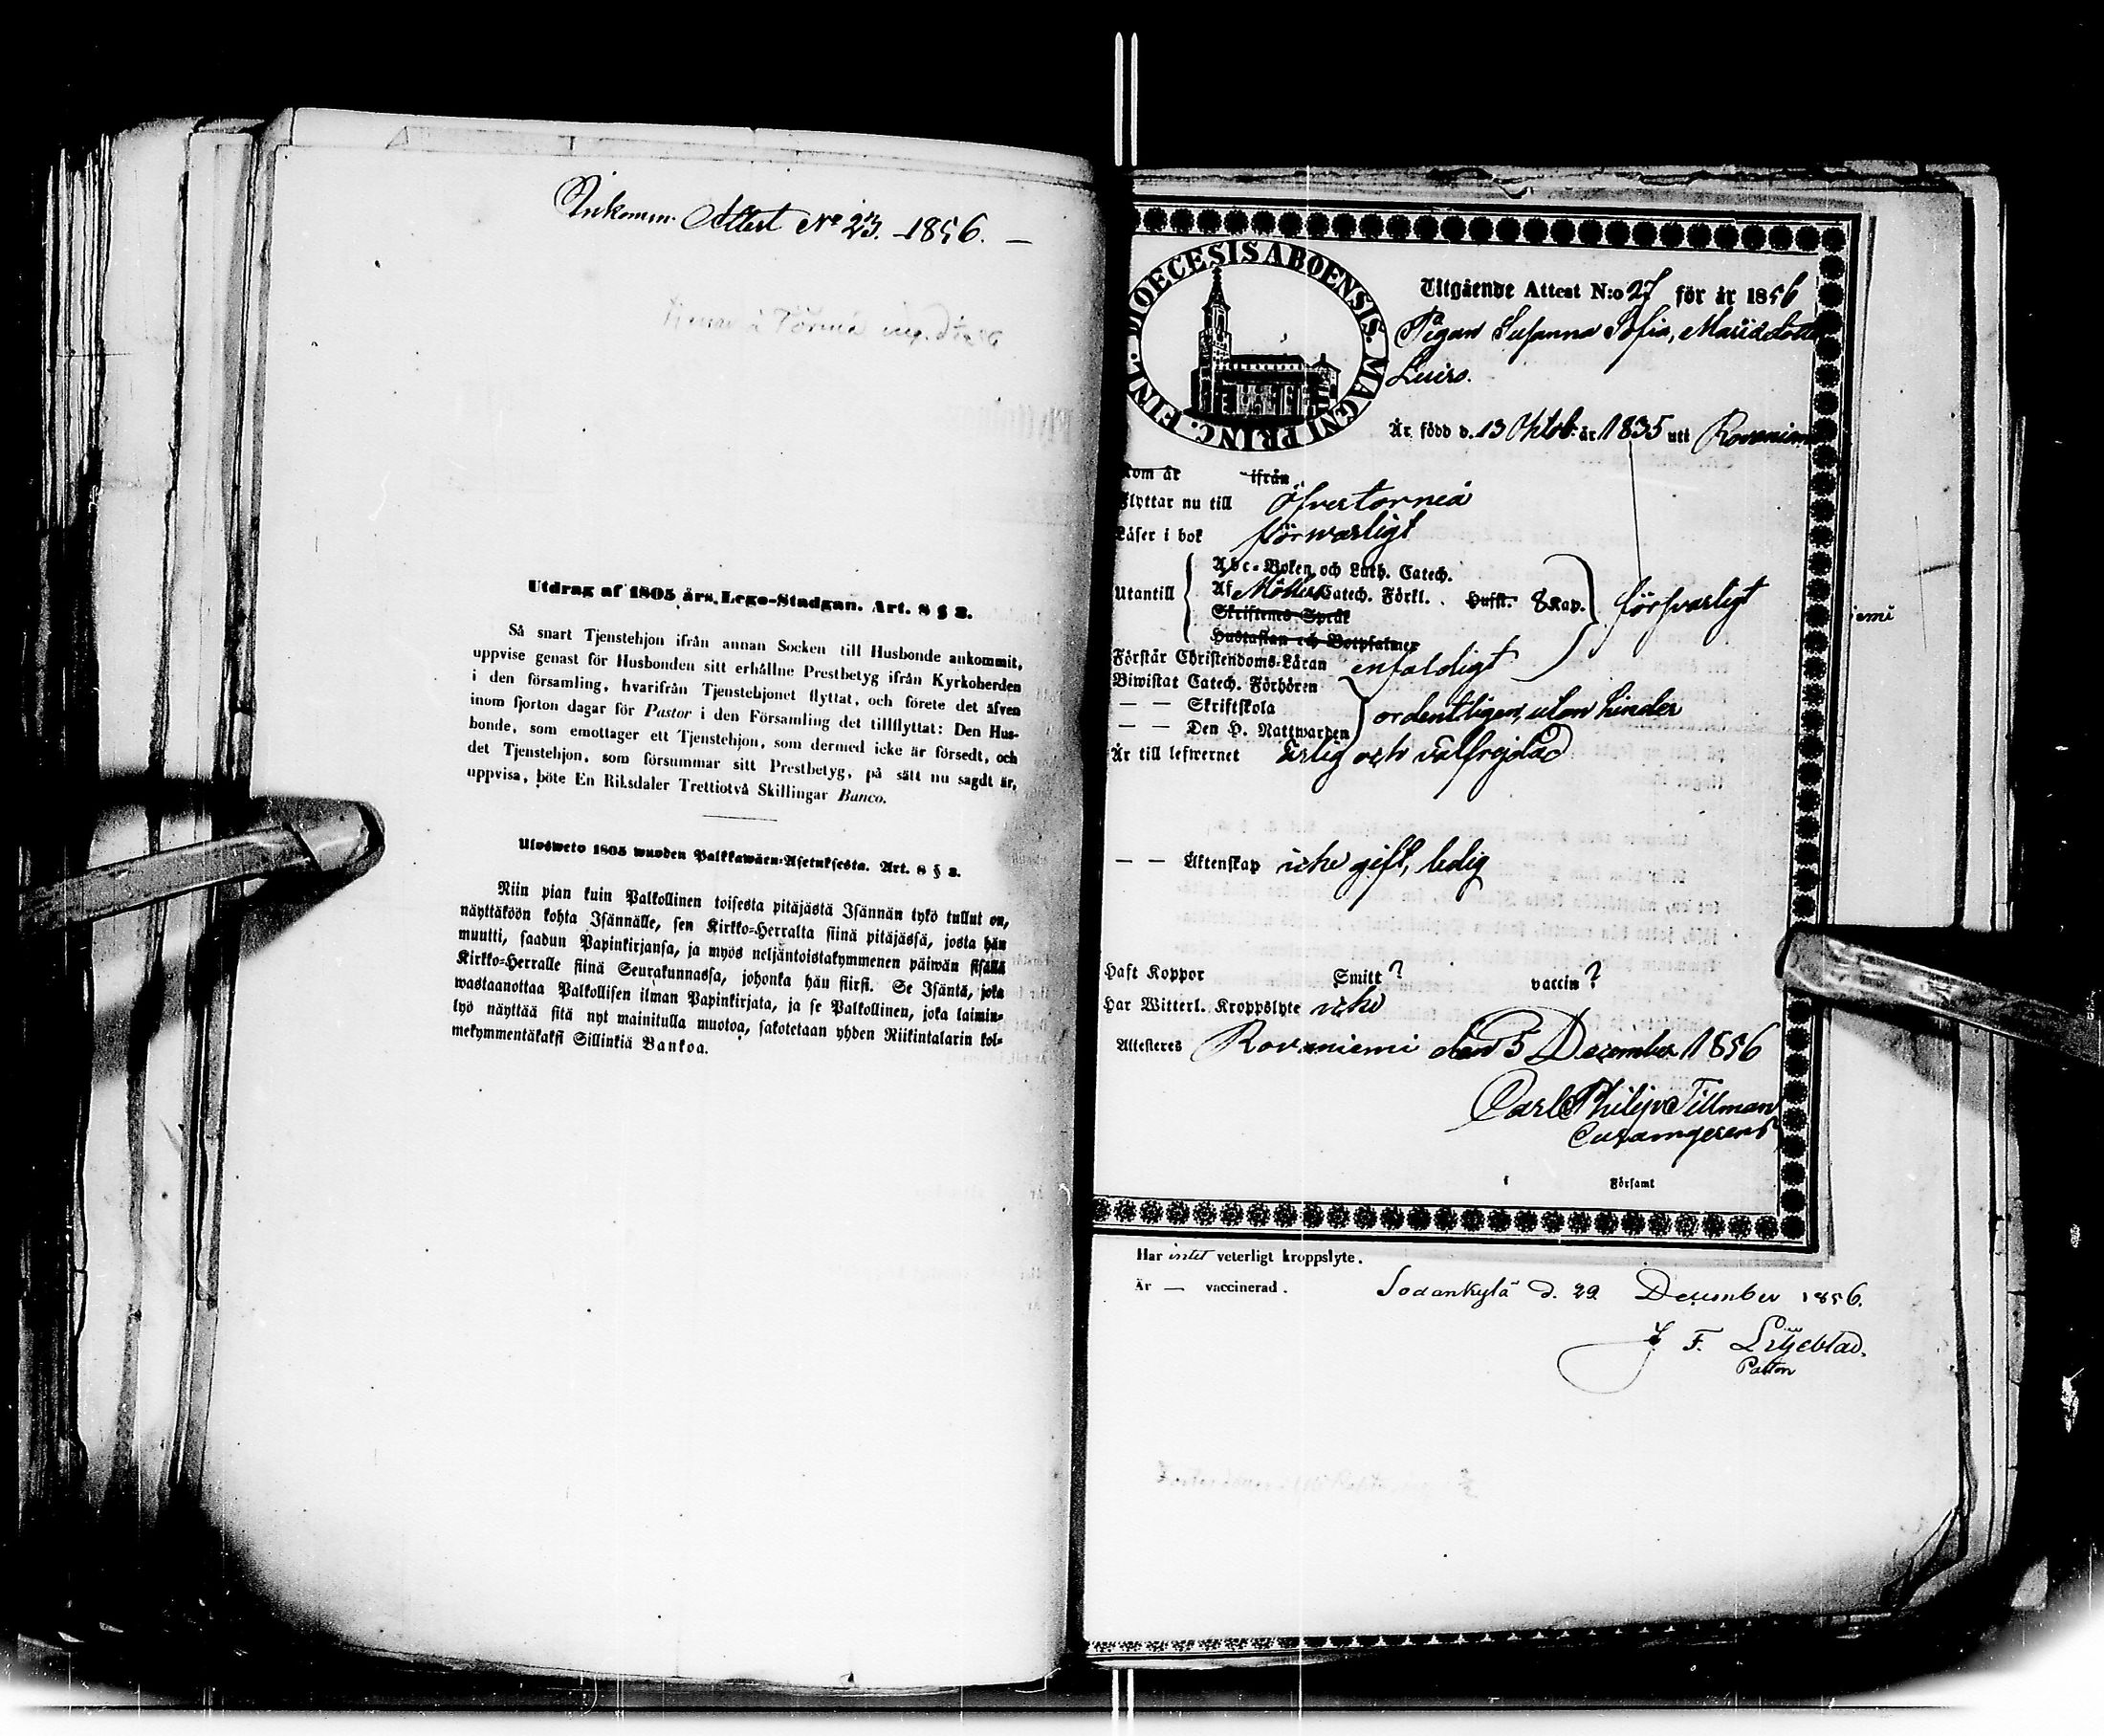 Inkomm. Attest No 23. 1856. —
Utdrag af 1805 års Lego-Stadgan. Art. 8 § 3.
Så snart Tjenstehjon ifrån annan Socken till Husbonde ankommit,
uppvise genast för Husbonden sitt erhållne Prestbetyg ifrån Kyrkoherden
i den församling, hvarifrån Tjenstehjonet flyttat, och förete det äfven
inom fjorton dagar för Pastor i den Församling det tillflyttat: Den Hus-
bonde, som emottager ett Tjenstehjon, som dermed icke är försedt, och
det Tjenstehjon, som försummar sitt Prestbetyg, på sätt nu sagdt är,
uppvisa, böte En Riksdaler Trettiotvå Skillingar Banco.
Ulosweto 1805 wuoden Palkkawäen-Asetuksesta. Art. 8 § 3.
Niin pian kuin Palkollinen toisesta pitäjästä Isännän tykö tullut on,
näyttäköön kohta Isännälle, sen Kirkko-Herralta siinä pitäjässä, josta hän
muutti, saadun Papinkirjansa, ja myös neljäntoistakymmenen päiwän sisällä
Kirkko-Herralle siinä Seurakunnassa, johonka hän siirsi. Se Isäntä, joka
wastaanottaa Palkollisen ilman Papinkirjata, ja se Palkollinen, joka laimin-
lyö näyttää sitä nyt mainitulla muotoa, sakotetaan yhden Riikintalarin kol-
mekymmentäkaksi Sillinkiä Bankoa.
DIOECESIS ABOENSIS. MAGNI PRINC. FINL.
Utgående Attest N:o 27 för år 1856
Pigan Susanna Sofia, Mariædotter
Luiro.
Är född d. 13 Oktob. år 1835 uti Rovaniemi
Kom år ifrån
Flyttar nu till Öfvertorneå
Läser i bok förswarligt
Utantill
Abc-Boken och Luth. Catech.
Af Möllers Catech. Förkl. Husfl. 8 Kap.
Skriftenes Språk
Hustaflan och Botpsalmer
förswarligt
Förstår Christendoms-Läran enfaldigt
Biwistat Catech. Förhören
— — Skriftskola
— — Den H. Nattwarden
ordentligen, utan hinder
Är till lefwernet ärlig och välfrejdad
— — Äktenskap icke gift, ledig
Haft Koppor Smitt ? vaccin ?
Har Witterl. Kroppslyte icke
Attesteres Rovaniemi den 5 December 1856
Carl Philip Tillman
Curamgerens
Församl
iemi
Har intet veterligt kroppslyte.
Är — vaccinerad.
Sodankylä d. 29 December 1856.
J. F. Liljeblad.
Pastor